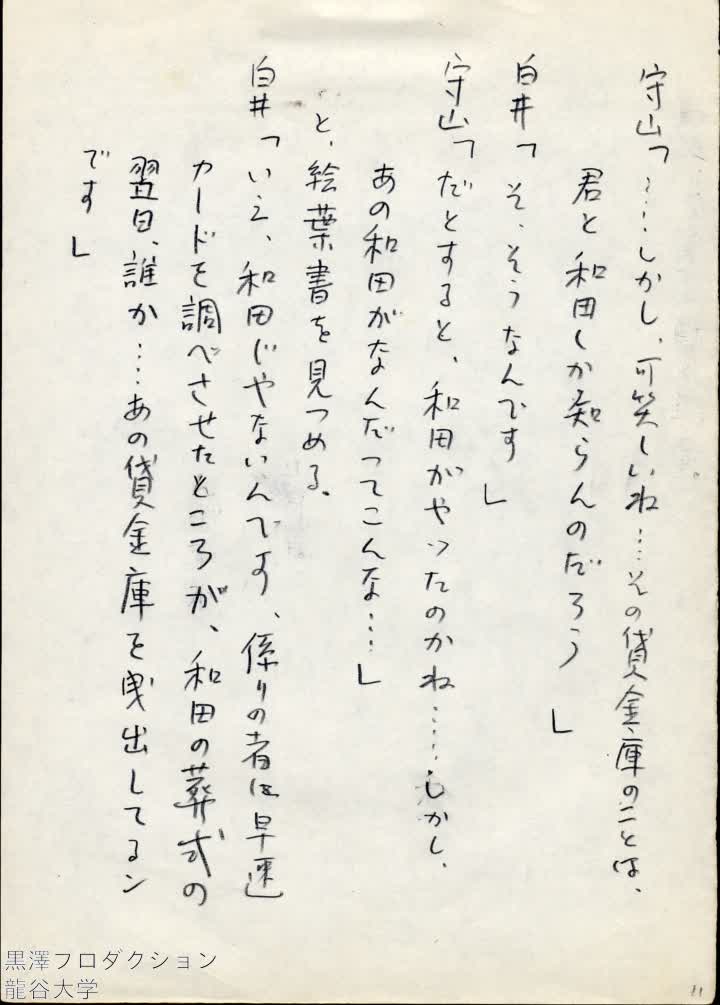 守山「……しかし、可笑しいね…その貸金庫のことは、
君と和田しか知らんのだろう」
白井「そ、そうなんです」
守山「だとすると、和田がやったのかね……しかし、
あの和田がなんだってこんな…」
と、絵葉書を見つめる。
白井「いえ、和田じゃないんです、係りの者に早速
カードを調べさせたところが、和田の葬式の
翌日、誰か…あの貸金庫を曳出してるン
です」
黒澤プロダクション
龍谷大学
11